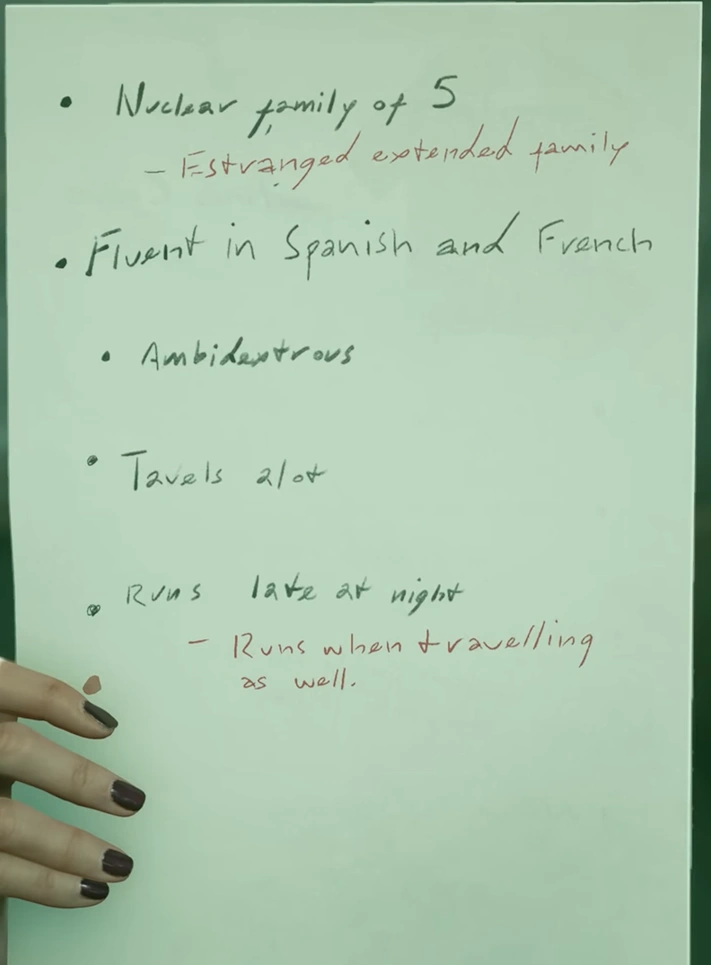 • Nuclear family of 5
- Estranged extended family
• Fluent in Spanish and French
• Ambidextrous
• Tavels alot
• Runs late at night
- Runs when travelling
as well.
•